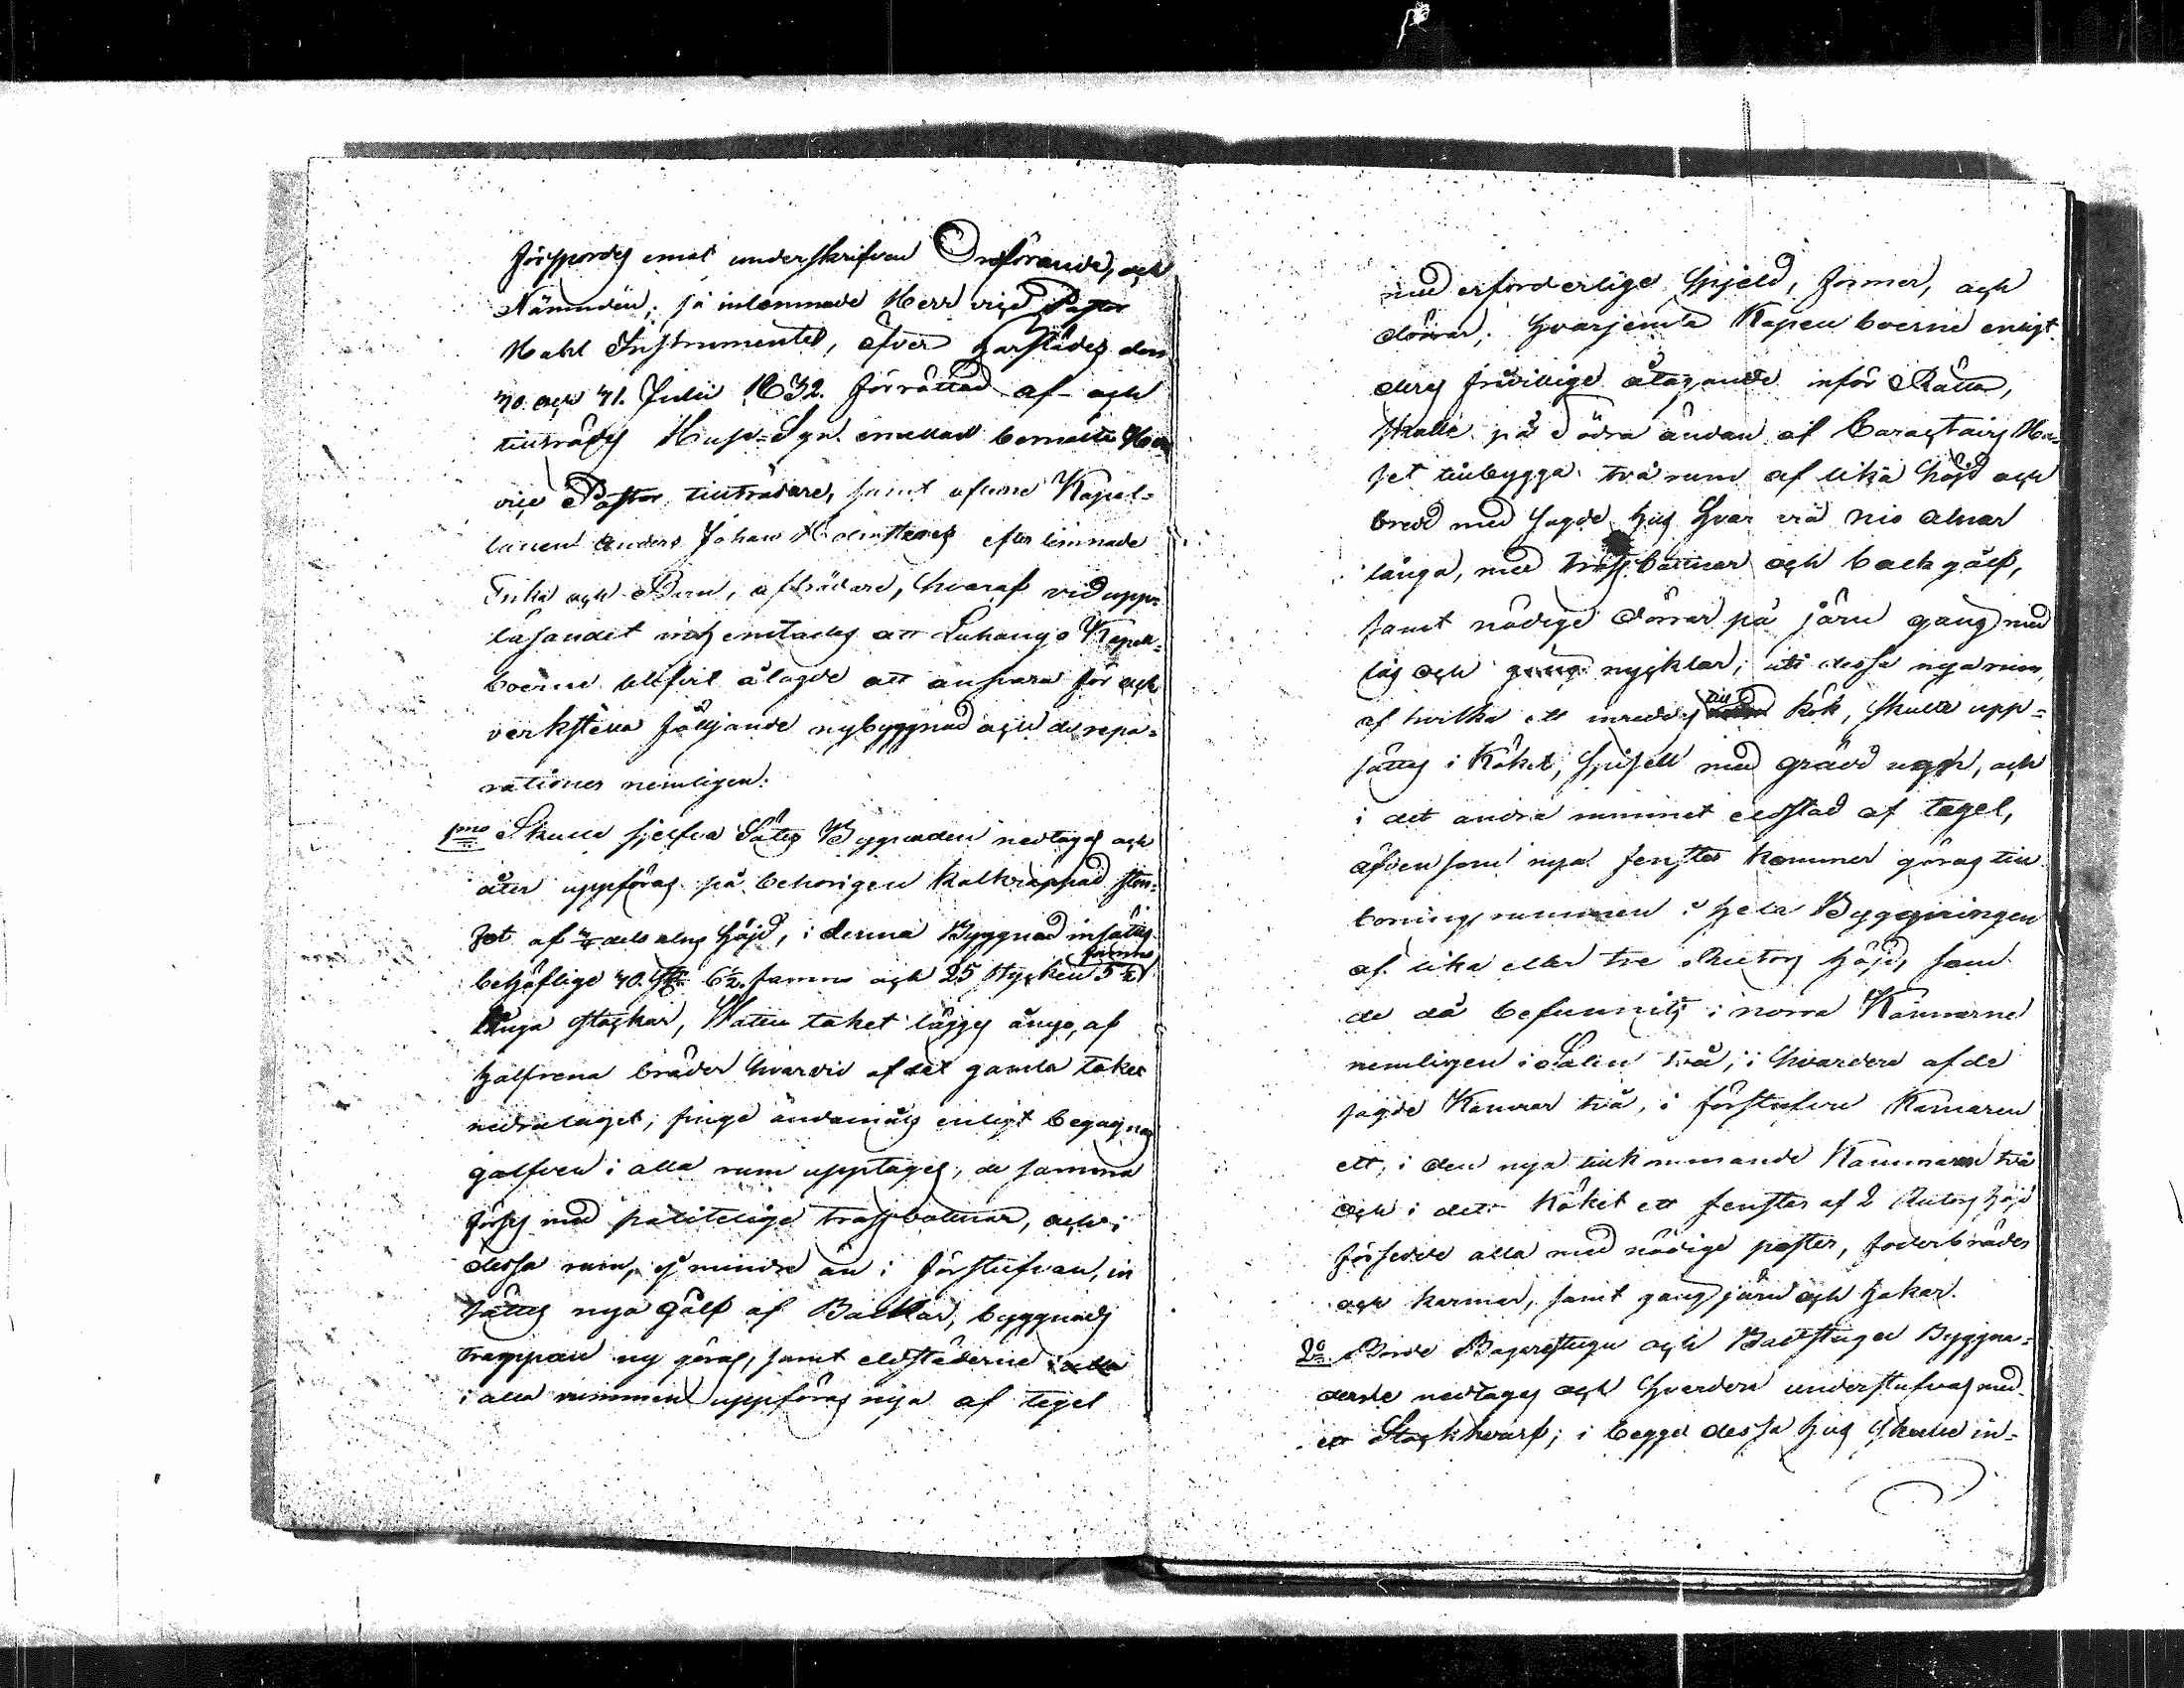 förspordes emot underskrifven Ordförande, och
Nämnden; så inlemnade Herr vice Pastor
Hahl Instrumentet, öfver härstädes den
10. och 11. Julii 1832. förrättad af- och
tillträdes Huse-Syn emellan bemälte Herr
vice Pastor tillträdare, samt aflidne Kapel-
lanen Anders Johan efterlemnade
Enka och Barn, afträdare, hvaraf vid upp-
läsandet inhemtades att Luhango Kapell-
boerne blifvit ålagde att ansvara för och
verkställa följande nybyggnad och de repa-
rationer nemligen:
1mo Skulle sjelfva Sätes Byggnaden nedtagas och
åter uppföras på behörigen kalkrappad sten-
fot af dels alns höjd, i denna Byggnad insättas
behöflige 10. st. 6½ famns och 25 stycken 5½ famns
långa Stockar, Vatten taket lägges ånyo, af
halfrena bräder hvarvid af det gamla taket
nedra laget, finge ändamåls enligt begagnas
golfven i alla rum upptages, de samma
förses med pålitelige trossbottnar, och i
dessa rum, ej mindre än i förstufvan, in
sättes nya Golf af Balkar, byggnads
trappan ny göras, samt eldstäderne
i alla rummen uppföras nya af tegel
med erforderlige spjeld, former, och
dörrar; hvarjemte Kapellboerne enligt
deras friwillige åtagande inför Rätta,
skulle på Södra ändan af Caractairs Hu-
set tillbygga två rum af lika höjd och
bredd med sagde hus hvar era nio alnar
långa, med trossbottnar och balk golf,
samt nödige dörrar på järn gang med
lås och nycklar; uti dessa nya rum,
af hvilka ett inredes till kök, skulle upp-
sättas i Köket, Spisell med gräddugn, och
i det andra rummet eldstad af tegel,
äfvensom nya fenster kommer göras till
boningsrummen i hela Byggningen
af lika eller tre Rutors höjd, som
de då befunnits i norra Kamrarne
nemligen i Salen två, i hvardera af de
sagde Kamrar två, i förstufvu Kamaren
ett, i den nya tillkommande Kammaren två
och i det Köket ett fenster af 2 Rutors höjd
försedde alla med nödige poster, foderbräder
och karmar, samt gangjärn och hakar.
2o Borde Bagarestugu och Badstugu Byggna-
derne nedtagas och hvardera understufvas med
ett Stockhvarf; i begge dessa hus skulle in-